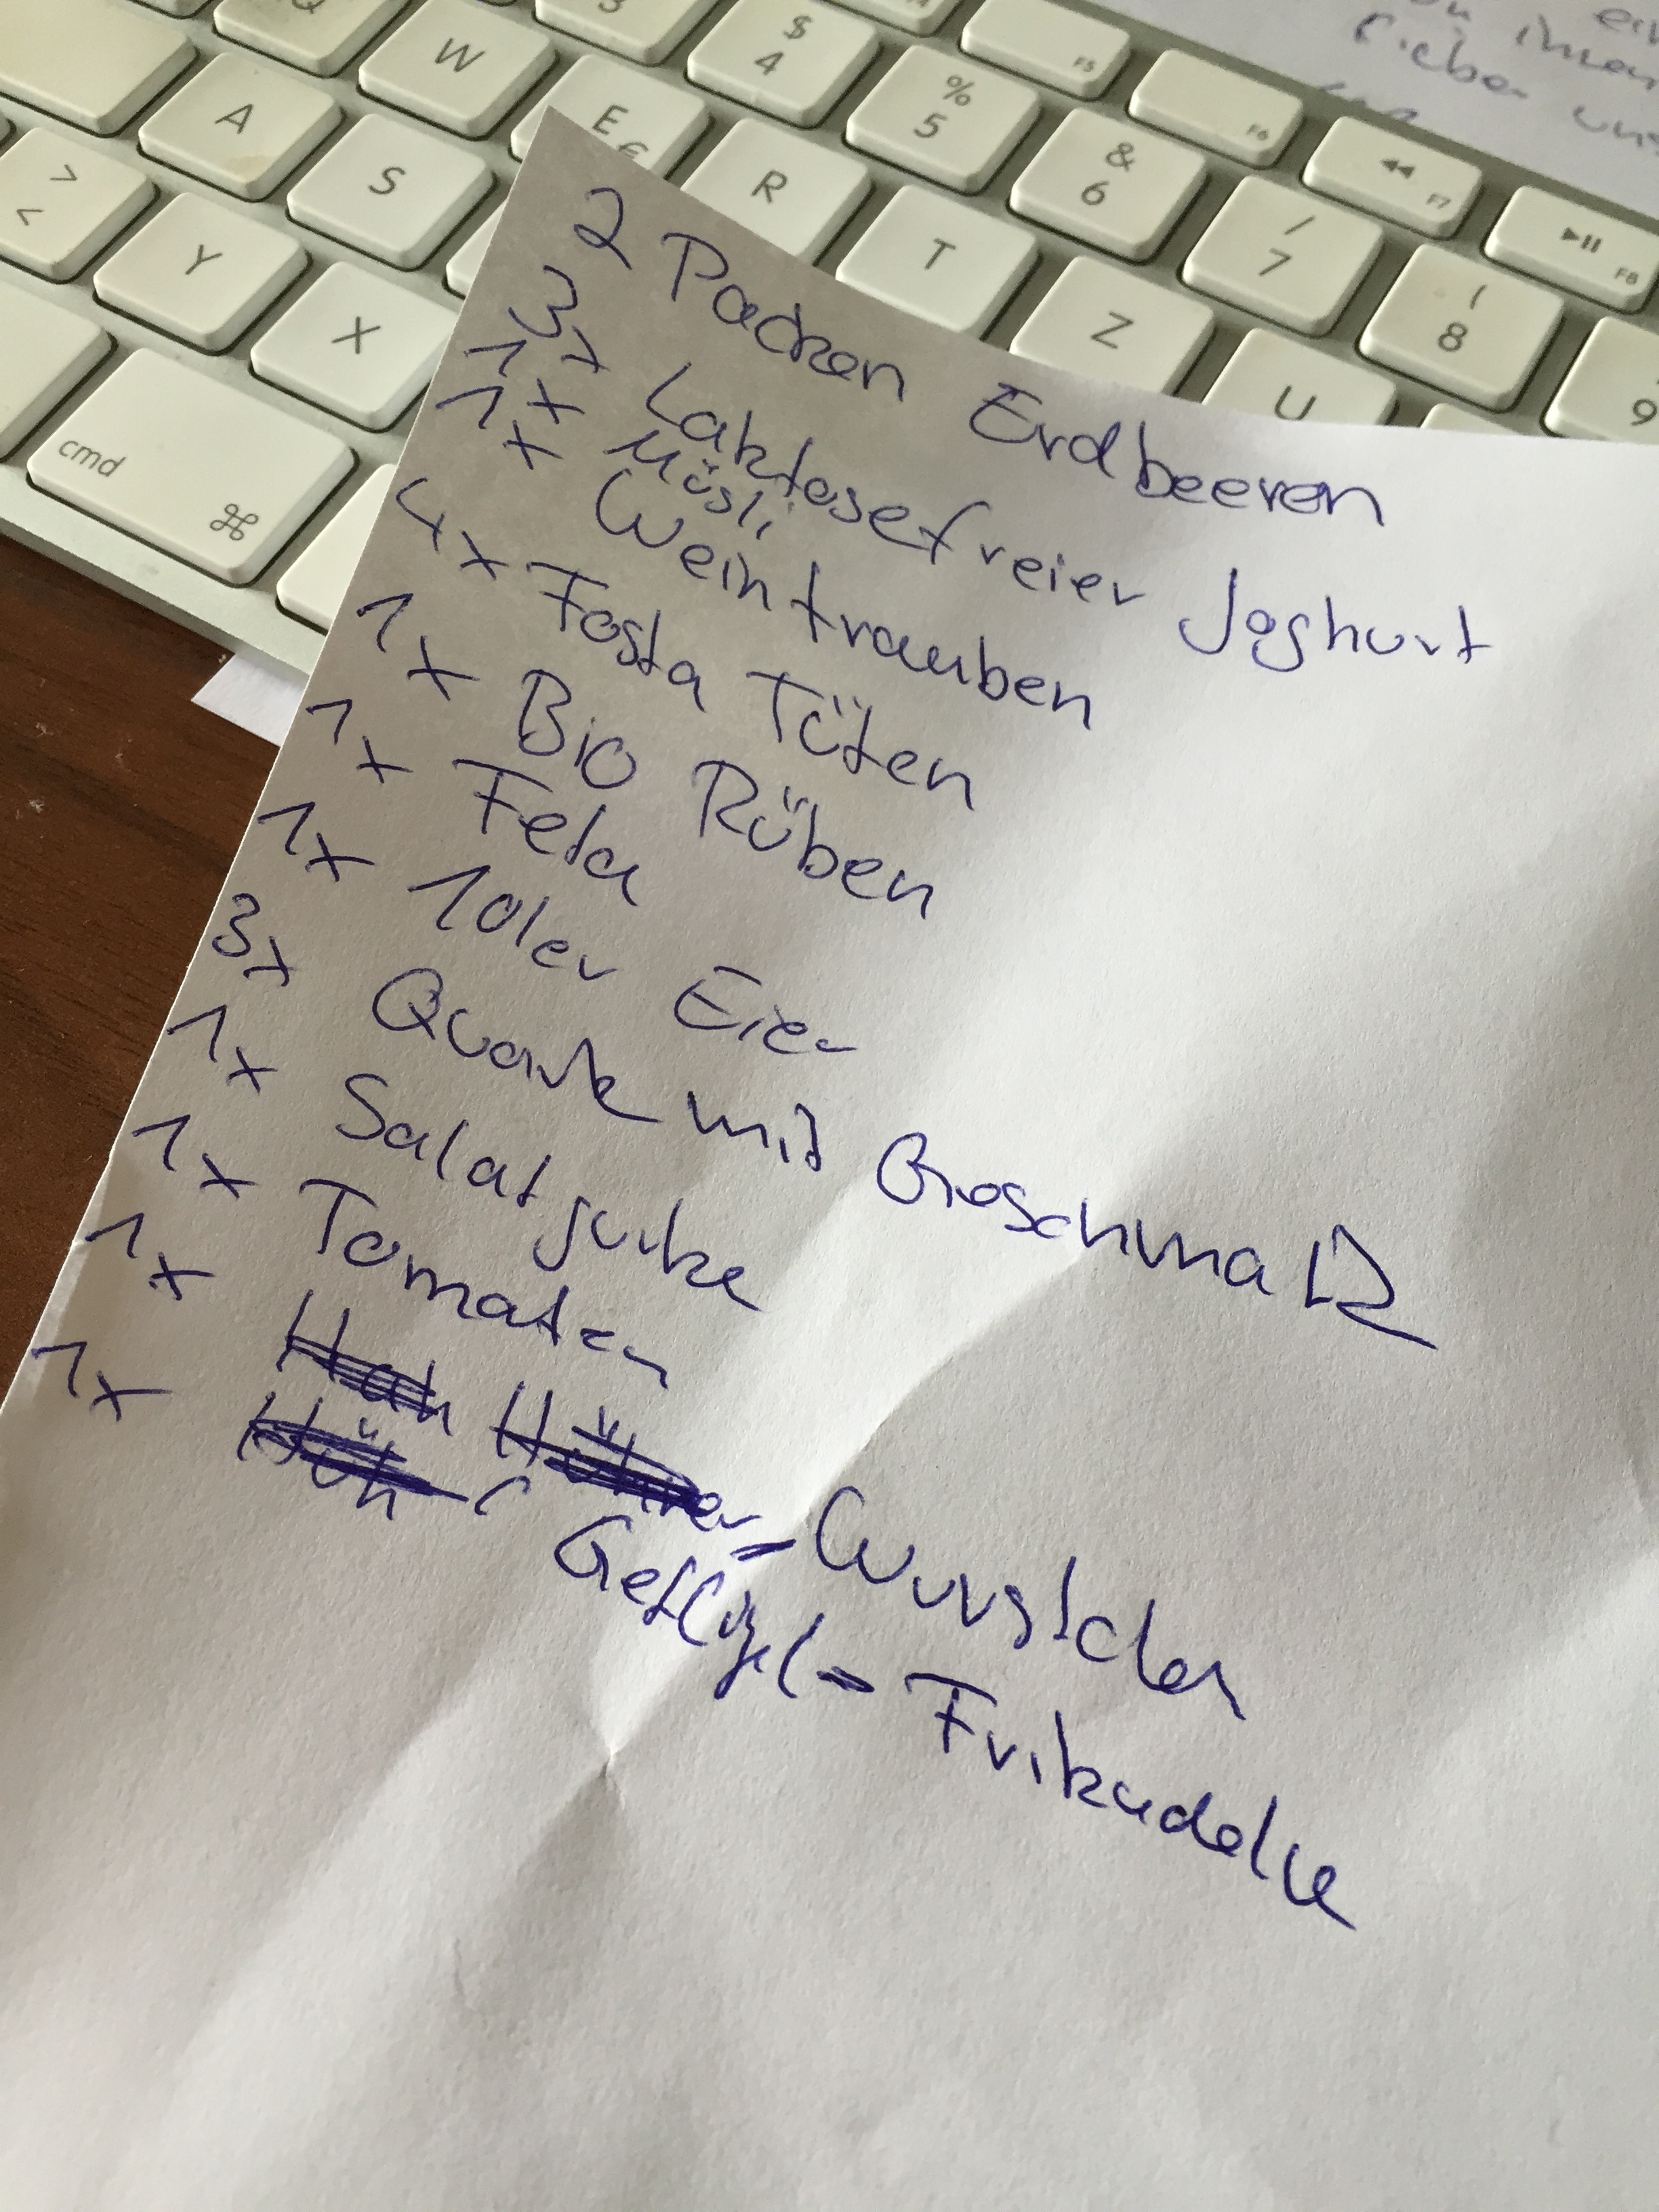 Q
3
$
4
F5
ein
on ihnen
W
%
5
F6
Lieben uns
A
E
€
&
6
F7
>
<
S
R
/
7
F8
Y
T
(
8
X
Z
9
cmd
⌘
U
2 Packen Erdbeeren
3x Laktosefreier Joghurt
1x Müsli
1x Weintrauben
4x Fosta Tüten
1x Bio Rüben
1x Feta
1x 10ler Eier
3x Quark mit
1x Salatgurke
1x Tomaten
1x Hah Hühner-Wurstchen
1x Hüh Geflügel-Frikadelle